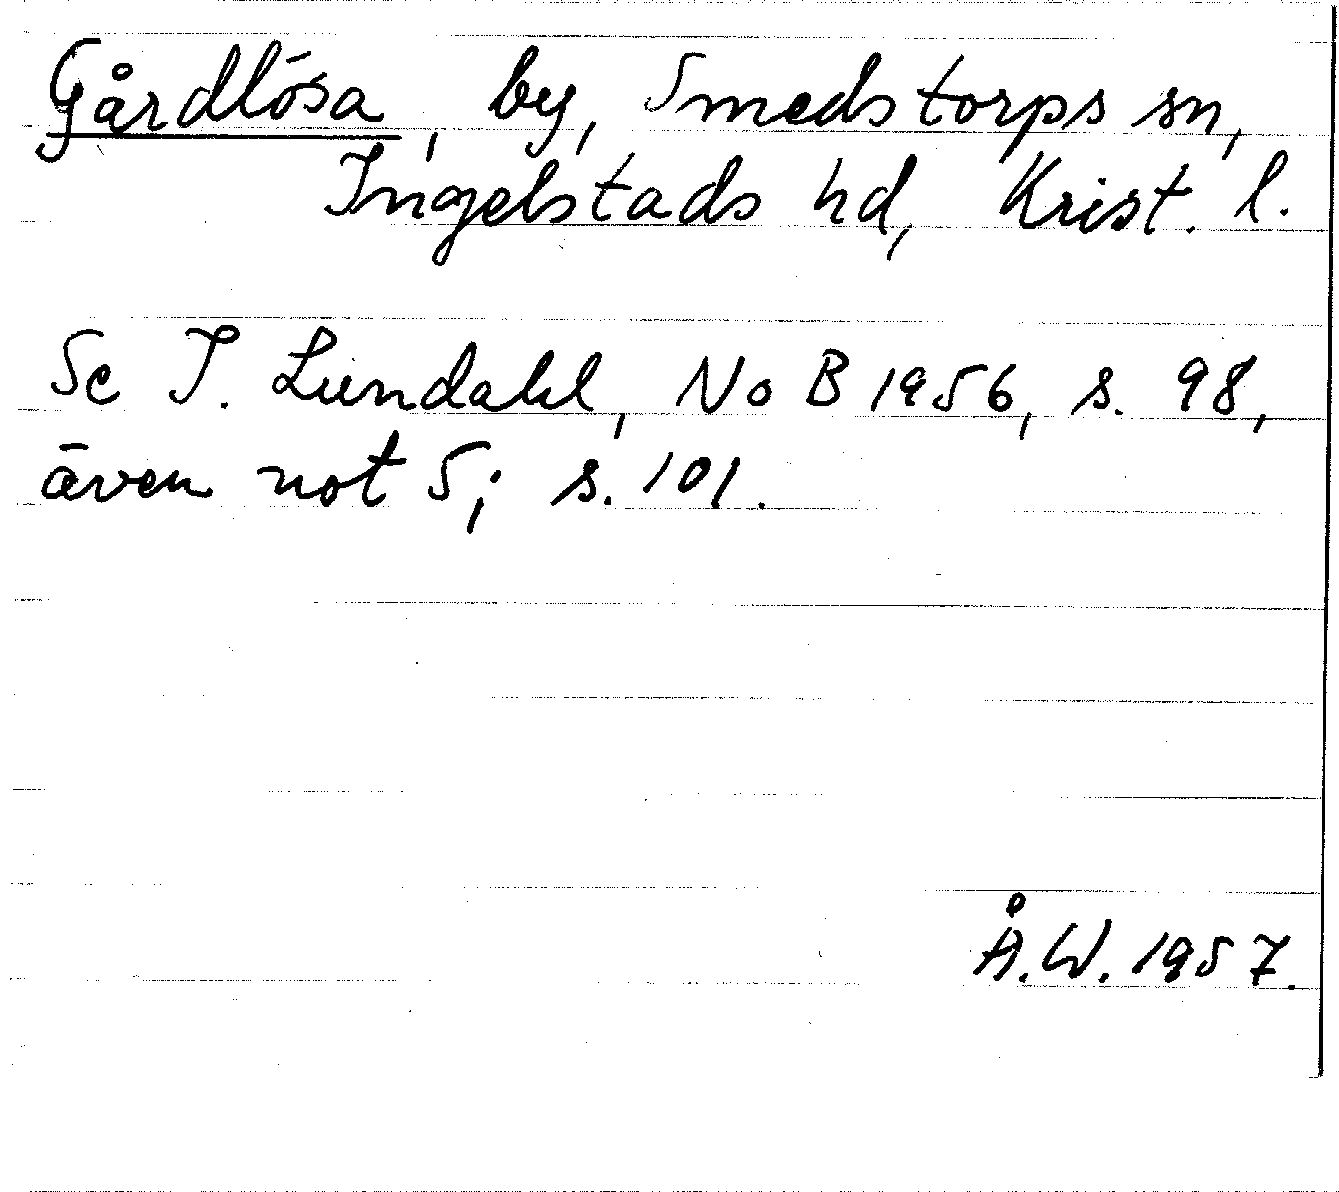 Gårdlösa, by, Smedstorps sn,
Ingelstads hd, Krist. l.
Se I. Lundahl, NoB 1956, s. 98,
även not 5; s. 101.
Å.W. 1957.